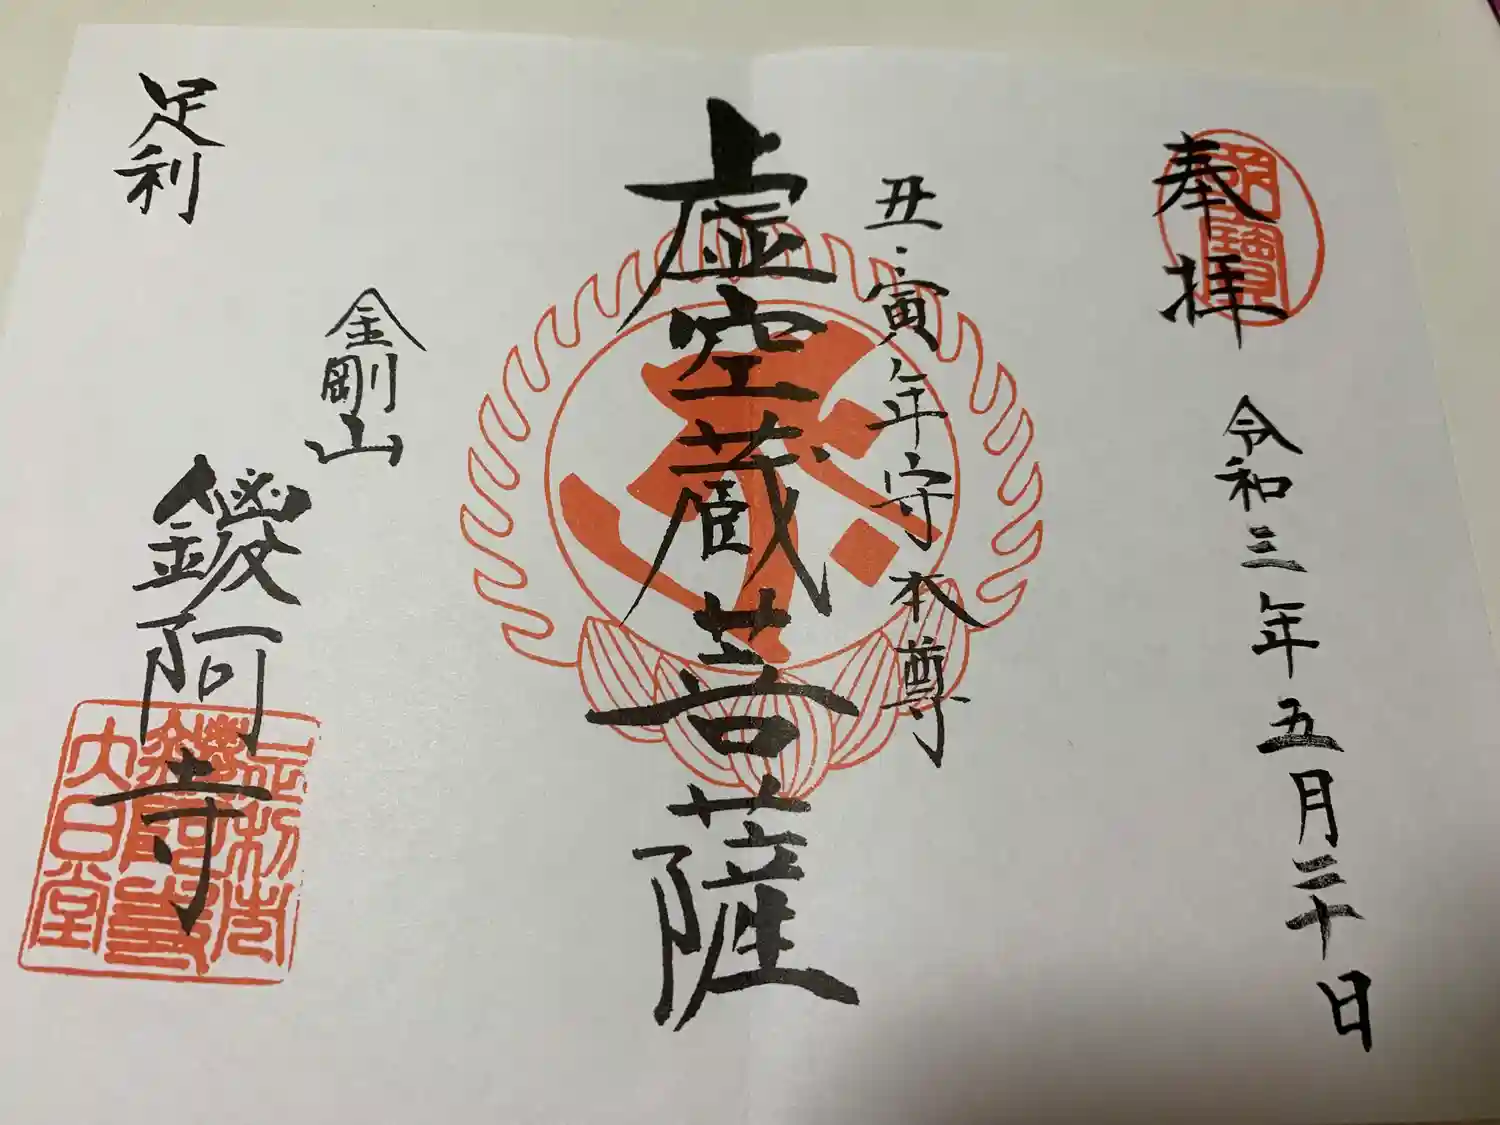 奉拝
令和三年五月三十日
丑・寅年守本尊
虚空蔵菩薩
金剛山
鑁阿寺
足利
足利市
鑁阿寺
大日堂